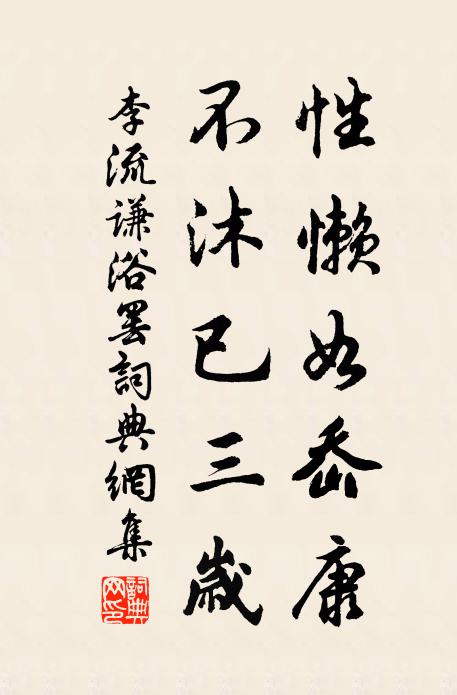 性懶如嵇康
不沐已三歲
李流謙浴罢詞典網集
詞典网印